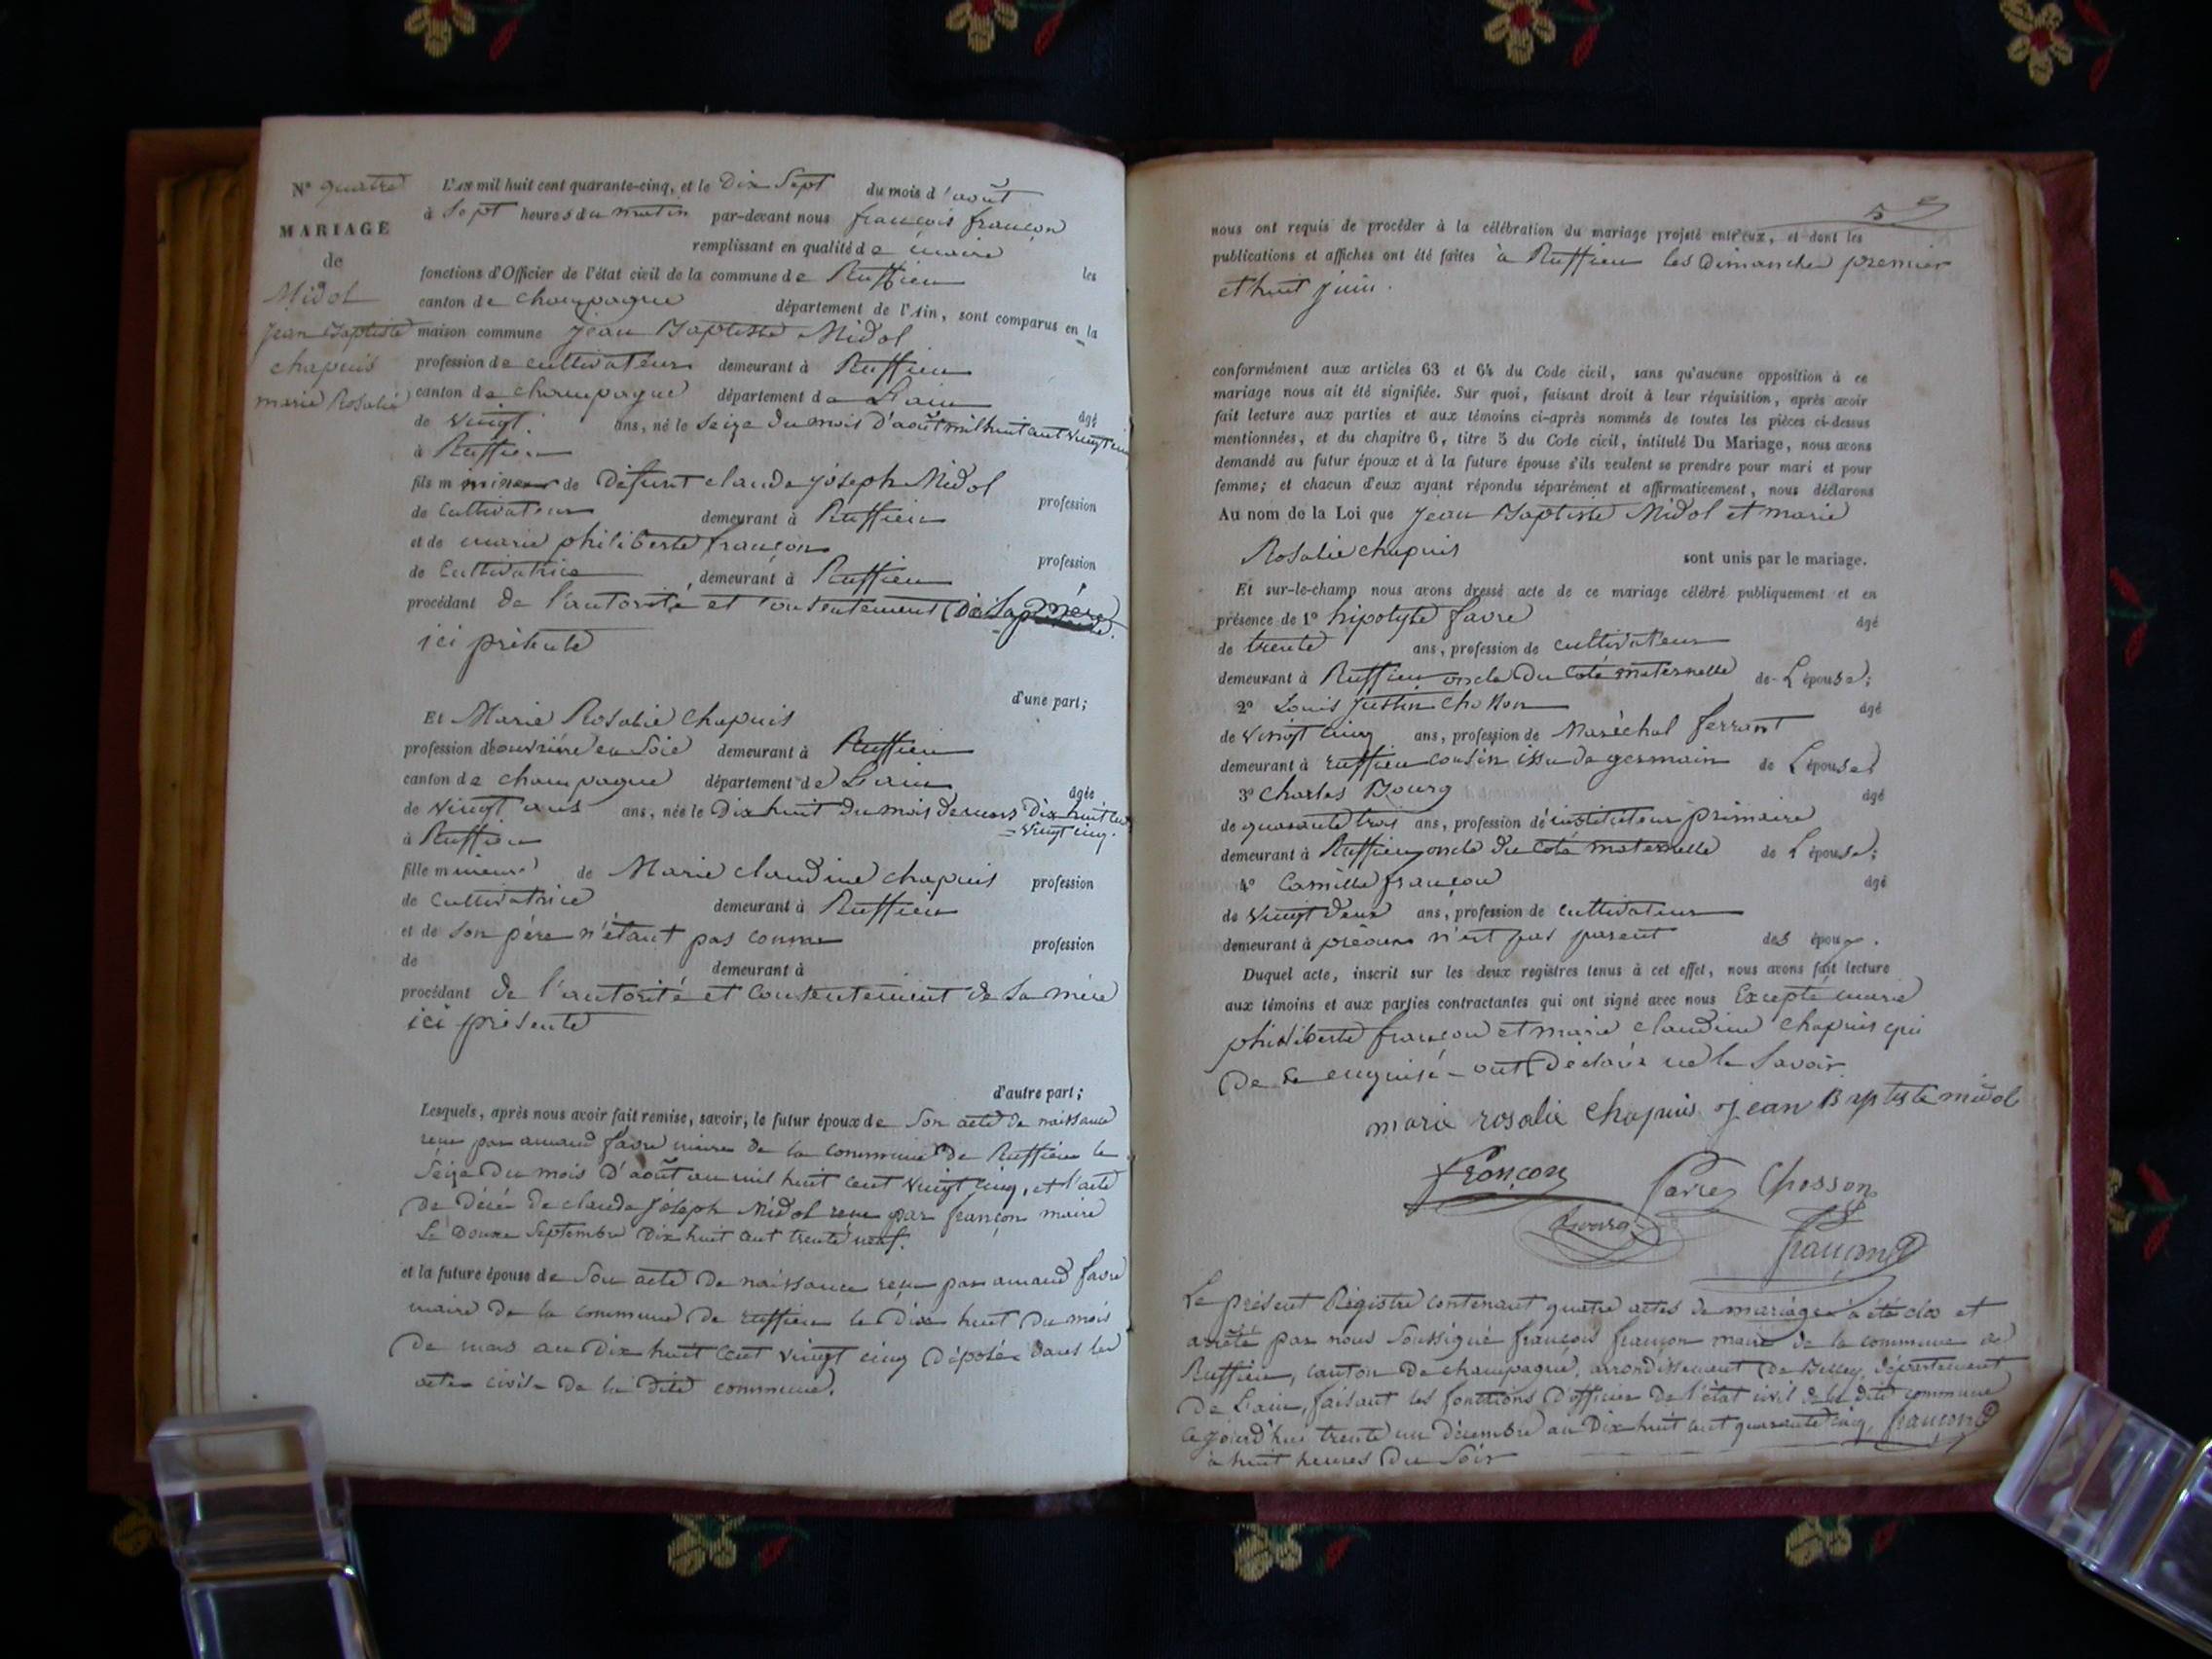 N° quatre
MARIAGE
de
Midol
Jean Baptiste
chapuis
marie Rosalie
L'AN mil huit cent quarante-cinq, et le Dix Sept du mois d'août
à Sept heures du matin par-devant nous françois françon
remplissant en qualité de maire
fonctions d'Officier de l'état civil de la commune de Ruffieu les
canton de champagne département de l'Ain, sont comparus en la
maison commune Jean Baptiste Midol
profession de cultivateur demeurant à Ruffieu
canton de champagne département de L'ain âgé
de vingt ans, né le seize du mois d'août mil huit cent vingt cinq
à Ruffieu
fils mineur de Défunt claude joseph Midol profession
de cultivateur demeurant à Ruffieu
et de marie philiberte françon profession
de Cultivatrice demeurant à Ruffieu
procédant de l'autorité et consentement De Sa mère
ici présente
d'une part;
Et Marie Rosalie Chapuis
profession d'ouvrière en Soie demeurant à Ruffieu
canton de champagne département de L'ain âgée
de vingt ans ans, née le Dix huit du mois de mars Dix huit cent
vingt cinq.
à Ruffieu
fille mineure de Marie claudine chapuis profession
de Cultivatrice demeurant à Ruffieu
et de son père n'étant pas connu profession
de demeurant à
procédant de l'autorité et consentement de Sa mère
ici présente
d'autre part;
Lesquels, après nous avoir fait remise, savoir; le futur époux de Son acte de naissance
reçu par amand favre maire de la commune de Ruffieu le
Seize Du mois D'août an mil huit cent vingt cinq, et l'acte
De Décé de claude Joseph Midol reçu par françon maire
Le Douze Septembre Dix huit cent trente neuf.
et la future épouse de Son acte De naissance reçu par amand favre
maire de la commune de ruffieu le Dix huit Du mois
De mars an Dix huit cent vingt cinq Déposée dans les
actes civils De la Dite commune.
5
nous ont requis de procéder à la célébration du mariage projeté entr'eux, et dont les
publications et affiches ont été faites à Ruffieu les dimanches premier
et huit juin.
conformément aux articles 63 et 64 du Code civil, sans qu'aucune opposition à ce
mariage nous ait été signifiée. Sur quoi, faisant droit à leur réquisition, après avoir
fait lecture aux parties et aux témoins ci-après nommés de toutes les pièces ci-dessus
mentionnées, et du chapitre 6, titre 5 du Code civil, intitulé Du Mariage, nous avons
demandé au futur époux et à la future épouse s'ils veulent se prendre pour mari et pour
femme; et chacun d'eux ayant répondu séparément et affirmativement, nous déclarons
Au nom de la Loi que Jean Baptiste Midol et marie
Rosalie chapuis sont unis par le mariage.
Et sur-le-champ nous avons dressé acte de ce mariage célébré publiquement et en
présence de 1° hipolyte favre âgé
de trente ans, profession de cultivateur
demeurant à Ruffieu oncle Du Coté maternelle de L'épouse;
2° Louis Justin Chosson âgé
de vingt cinq ans, profession de Maréchal ferrant
demeurant à ruffieu cousin issu de germain de L'épouse
3° Charles Bourg âgé
de quarante trois ans, profession d'instituteur primaire
demeurant à Ruffieu oncle du Coté maternelle de l'épouse;
4° Camille françon âgé
de vingt deux ans, profession de cultivateur
demeurant à n'est pas parent des époux.
Duquel acte, inscrit sur les deux registres tenus à cet effet, nous avons fait lecture
aux témoins et aux parties contractantes qui ont signé avec nous Excepté marie
philiberte françon et marie claudine Chapuis qui
De ce enquise ont Déclaré ne le Savoir.
marie rosalie Chapuis Jean Baptiste midol
françon favre Chosson
Bourg françon
Le présent Régistre contenant quatre actes de mariage a été clos et
arrêté par nous Soussigné françois françon maire de la commune de
Ruffieu, canton De champagne, arrondissement De Belley, département
De L'ain, faisant les fonctions D'officier De l'état civil de la dite commune
cejourd'hui trente un Décembre an Dix huit cent quarante cinq, françon
à huit heures Du Soir